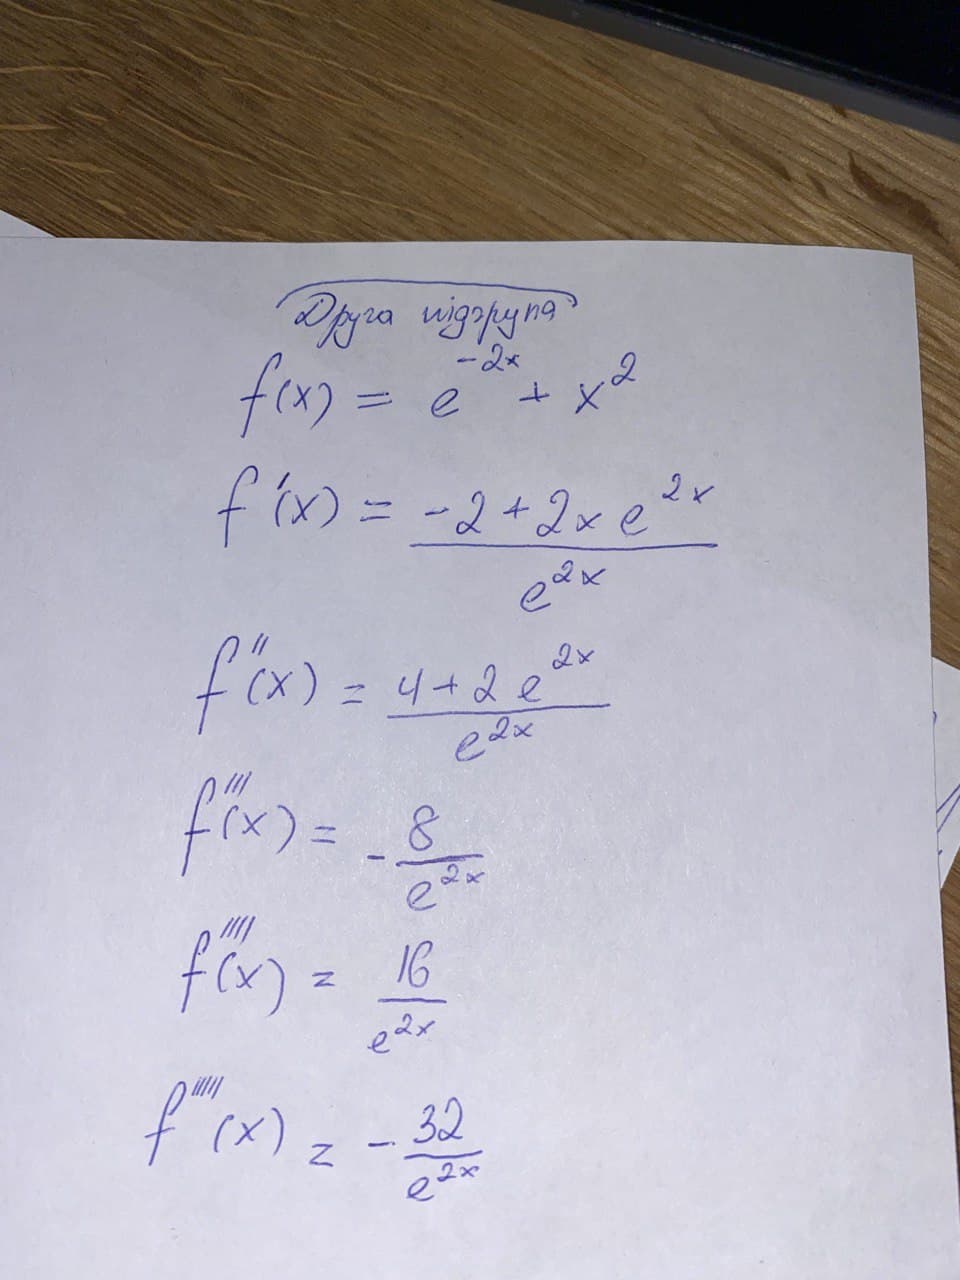 Друга підгрупа
f(x) = e^{-2x} + x^2
f'(x) = \frac{-2+2xe^{2x}}{e^{2x}}
f''(x) = \frac{4+2e^{2x}}{e^{2x}}
f'''(x) = -\frac{8}{e^{2x}}
f''''(x) = \frac{16}{e^{2x}}
f'''''(x) = -\frac{32}{e^{2x}}